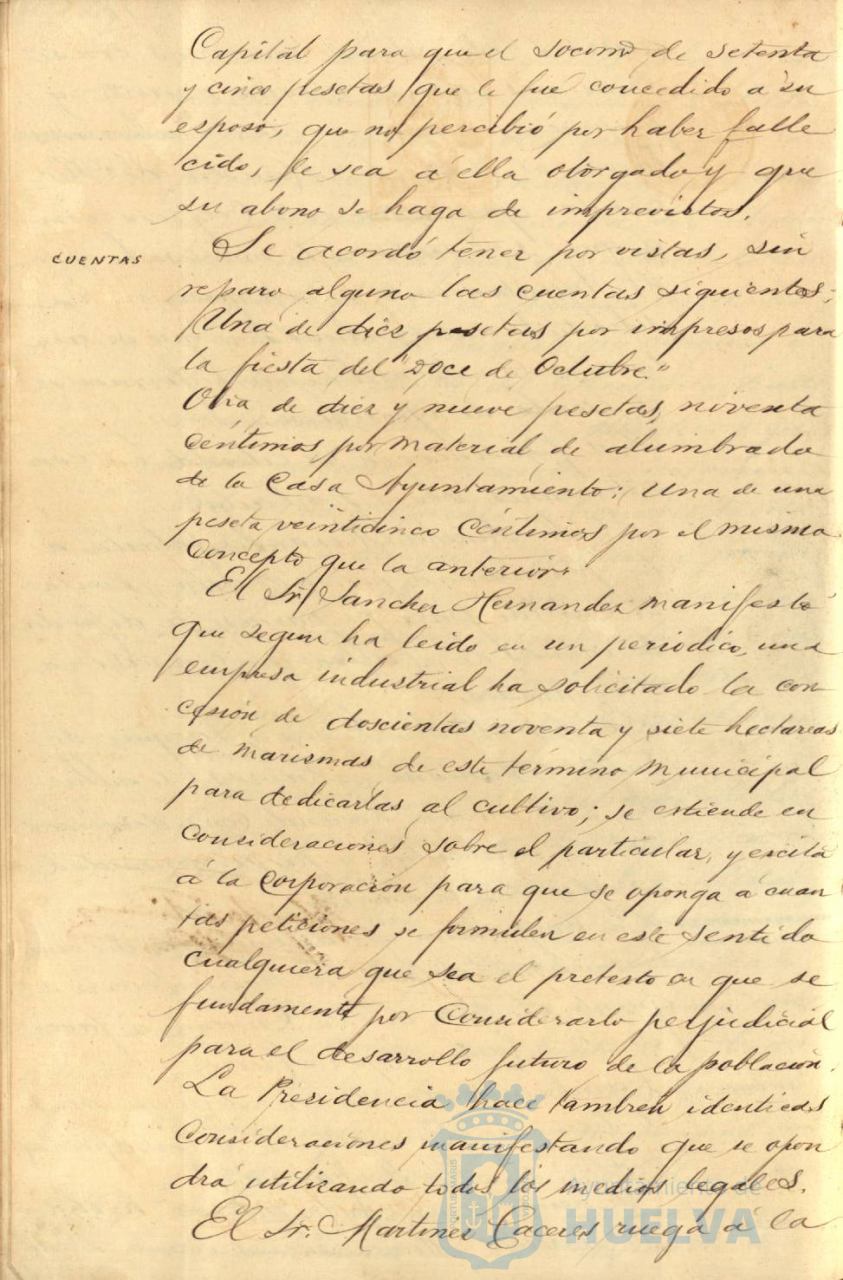 Capital para que el socorro de setenta
y cinco pesetas que le fué concedido a su
esposo, que no percibió por haber falle
cido, le sea á ella otorgado y que
su abono se haga de imprevistos.
CUENTAS
Se acordó tener por vistas, sin
reparo alguno las cuentas siguientes:
Una de diez pesetas por impresos para
la fiesta del "Doce de Octubre."
Otra de diez y nueve pesetas, noventa
céntimos por material de alumbrado
de la Casa Ayuntamiento: Una de una
peseta veinticinco céntimos por el mismo
concepto que la anterior.
El Sr. Sanchez Hernandez manifestó
que segun ha leido en un periodico, una
empresa industrial ha solicitado la con
cesión de doscientas noventa y siete hectareas
de marismas de este término municipal
para dedicarlas al cultivo; se estiende en
consideraciones sobre el particular, y excita
á la Corporación para que se oponga á cuan
tas peticiones se formulen en este sentido
cualquiera que sea el pretesto en que se
fundamente por considerarlo perjudicial
para el desarrollo futuro de la población.
La Presidencia hace tambien identicas
consideraciones manifestando que se opon
drá utilizando todos los medios legales.
El Sr. Martinez Caceres ruega á la
Ayuntamiento de
HUELVA